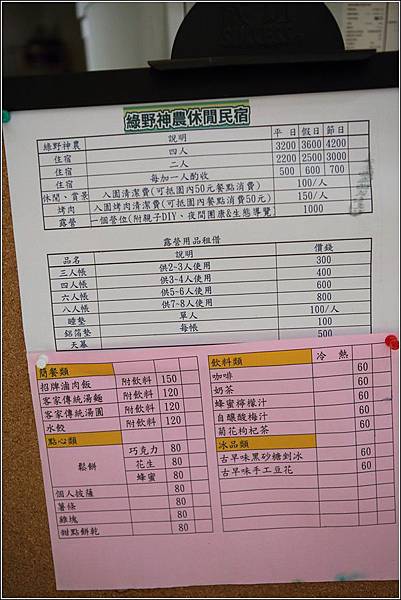 綠野神農休閒民宿
綠野神農 說明 平 日 假日 節日
住宿 四人 3200 3600 4200
住宿 二人 2200 2500 3000
住宿 每加一人酌收 500 600 700
休閒、賞景 入園清潔費(可抵園內50元餐點消費) 100/人
烤肉 入園烤肉清潔費(可抵園內餐點消費50元) 150/人
露營 一個營位(附親子DIY、夜間團康&生態導覽 1000
露營用品租借
品名 說明 價錢
三人帳 供2-3人使用 300
四人帳 供3-4人使用 400
六人帳 供5-6人使用 600
八人帳 供7-8人使用 800
睡墊 單人 100/人
鋁箔墊 每帳 100
天幕 500
簡餐類
招牌滷肉飯 附飲料 150
客家傳統湯麵 附飲料 120
客家傳統湯圓 附飲料 120
水餃 附飲料 120
點心類
鬆餅 巧克力 80
花生 80
蜂蜜 80
個人披薩 80
薯條 80
雞塊 80
甜點餅乾 80
飲料類 冷 熱
咖啡 60
奶茶 60
蜂蜜檸檬汁 60
自釀酸梅汁 60
菊花枸杞茶 60
冰品類
古早味黑砂糖剉冰 60
古早味手工豆花 60